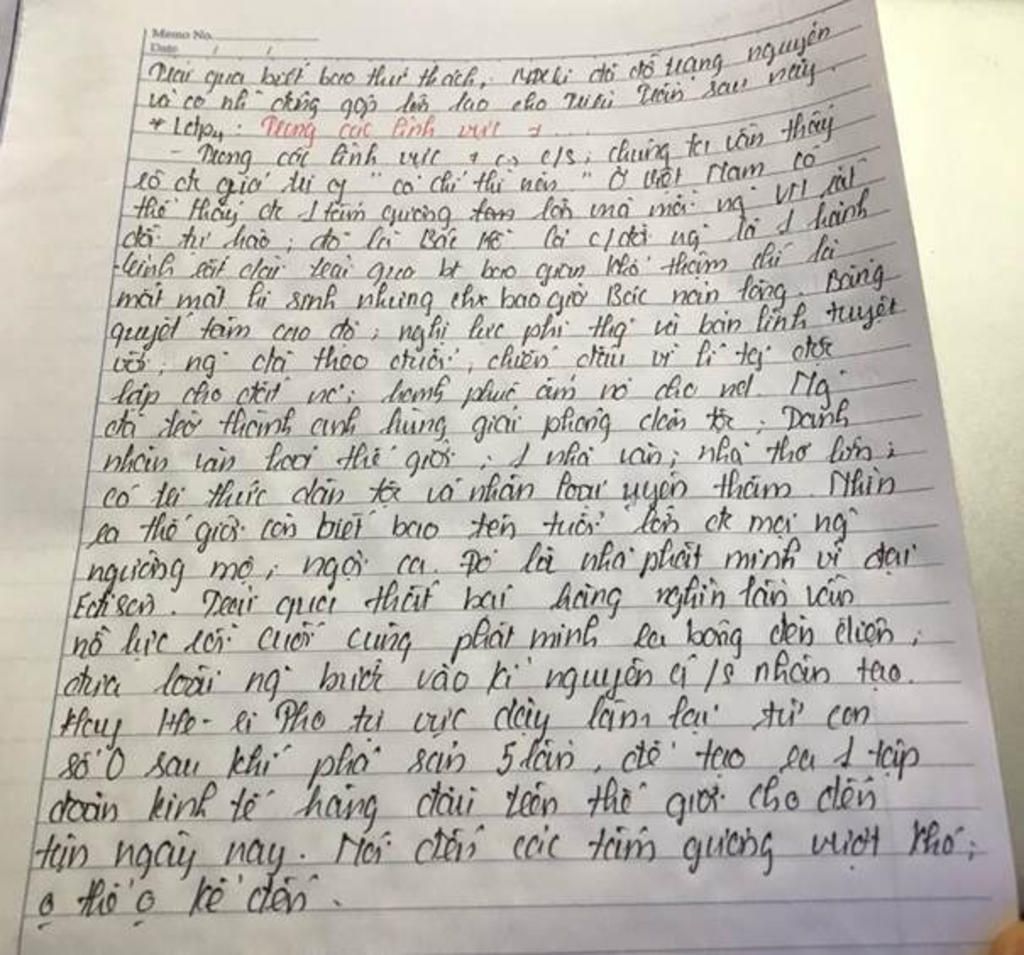 Memo No.
Date / /
Trải qua biết bao thử thách, đã đỗ trạng nguyên
và có nh~ đóng góp lớn lao cho triều Trần sau này.
* : Trong các lĩnh vực ≠ ...
- Trong các lĩnh vực ≠ c> c/s; chúng ta vẫn thấy
rõ đc giá trị of "có chí thì nên" Ở Việt Nam có
thể thấy đc 1 tấm gương lớn mà mỗi ng` VN rất
đỗi tự hào; đó là Bác Hồ là c/đời ng` là 1 hành
trình rất dài trải qua bt bao gian khó thậm chí là
mất mát hi sinh nhưng chx bao giờ Bác nản lòng. Bằng
quyết tâm cao độ; nghị lực phi thg` và bản lĩnh tuyệt
vời; ng` đã theo đuổi; chiến đấu vì lí tg' độc
lập cho đất nc'; hạnh phúc ấm no cho nd. Ng`
đã trở thành anh hùng giải phóng dân tộc; Danh
nhân văn hoá thế giới; 1 nhà văn; nhà thơ lớn;
có tri thức dân tộc và nhân loại uyên thâm. Nhìn
ra thế giới còn biết bao tên tuổi lớn đc mọi ng`
ngưỡng mộ; ngợi ca. Đó là nhà phát minh vĩ đại
Êđisơn. Trải qua thất bại hàng nghìn lần vẫn
nỗ lực rồi cuối cùng phát minh ra bóng đèn điện;
đưa loài ng` bước vào kỉ nguyên a/s nhân tạo.
Hay He-ri Pho tự vực dậy làm lại từ con
số 0 sau khi phá sản 5 lần, để tạo ra 1 tập
đoàn kinh tế hàng đầu trên thế giới cho đến
tận ngày nay. Nói đến các tấm gương vượt khó;
o thể o kể đến.